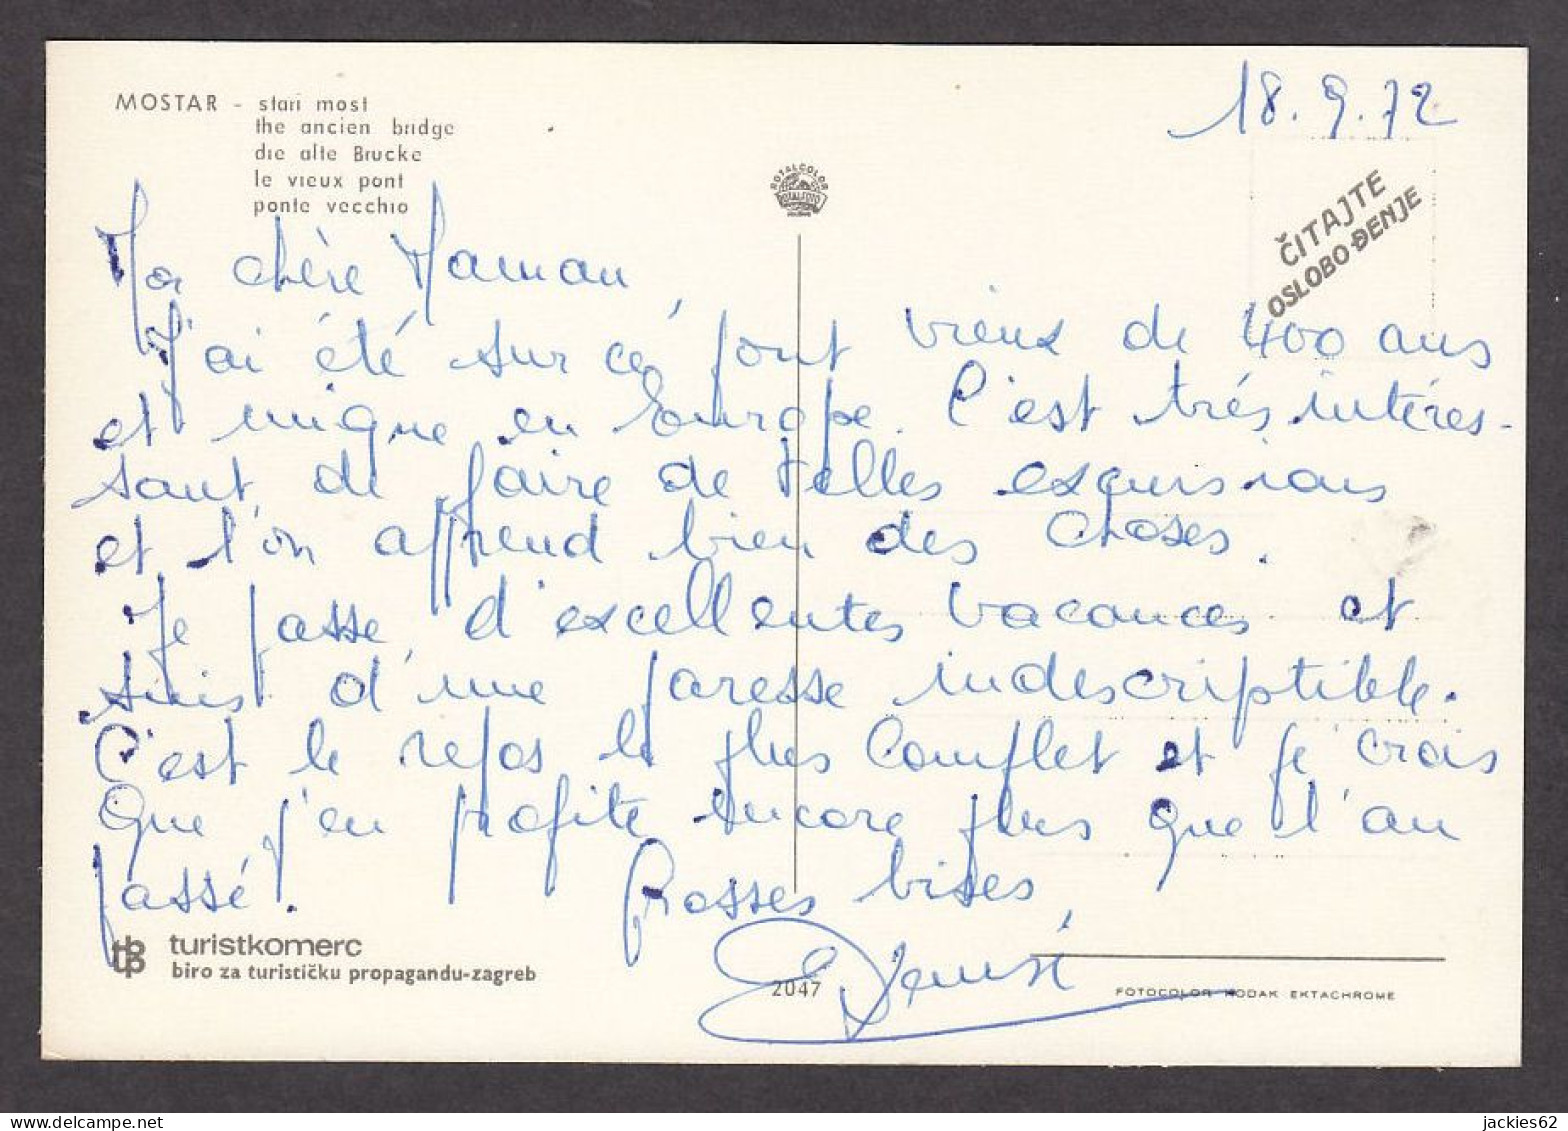 MOSTAR - stari most
the ancien bridge
die alte Brucke
le vieux pont
ponte vecchio
18.9.72
ROTALCOLOR
ROTALFOTO
ČITAJTE
OSLOBOĐENJE
Ma chère Maman,
J'ai été sur ce pont vieux de 400 ans
et unique en Europe. C'est très intéres-
sant de faire de telles excursions
et l'on apprend bien des choses.
Je passe d'excellentes vacances et
suis d'une paresse indescriptible.
C'est le repos le plus complet et je crois
que j'en profite encore plus que l'an
passé. Grosses bises,
Denise
turistkomerc
biro za turističku propagandu-zagreb
2047
FOTOCOLOR KODAK EKTACHROME
jackies62